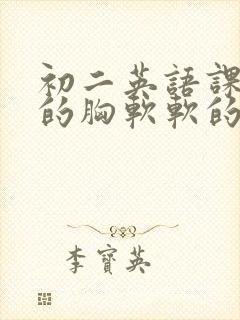 初二英語課
的胸軟軟的
李寶英